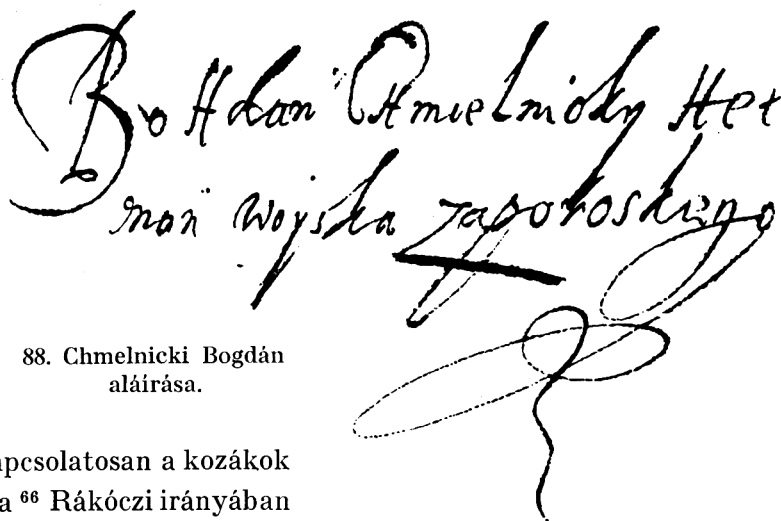 Bohdan Chmielnicky Het
man woyska zaporoskiego
88. Chmelnicki Bogdán
aláírása.
apcsolatosan a kozákok
a ⁶⁶ Rákóczi irányában